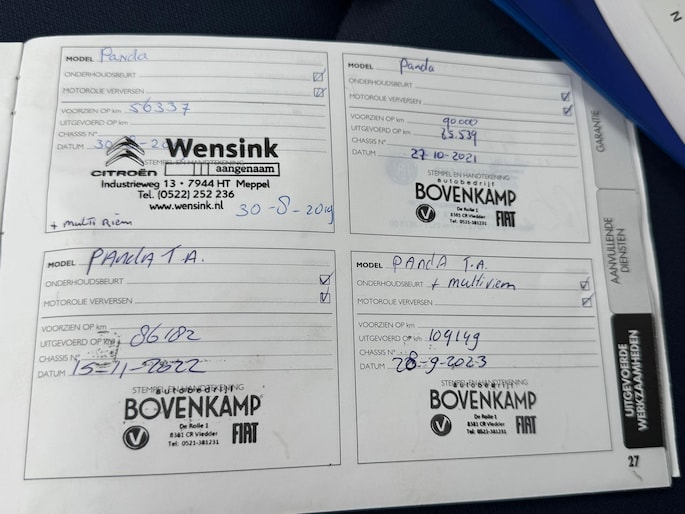 MODEL Panda
ONDERHOUDSBEURT
MOTOROLIE VERVERSEN
VOORZIEN OP km 56337
UITGEVOERD OP km
CHASSIS N°
DATUM 30
STEMPEL EN
CITROËN
Wensink
aangenaam
Industrieweg 13 • 7944 HT Meppel
Tel. (0522) 252 236
www.wensink.nl
30-8-2019
+ multi Riem
MODEL Panda
ONDERHOUDSBEURT
MOTOROLIE VERVERSEN
VOORZIEN OP km 90.000
UITGEVOERD OP km 25.539
CHASSIS N°
DATUM 27 10-2021
STEMPEL EN HANDTEKENING
autobedrijf
BOVENKAMP
De Rolle 1
8381 CR Vledder
Tel: 0521-381231
FIAT
MODEL PANDA T.A.
ONDERHOUDSBEURT
MOTOROLIE VERVERSEN
VOORZIEN OP km
UITGEVOERD OP km 86182
CHASSIS N°
DATUM 15-11-2022
STEMPEL EN HANDTEKENING
autobedrijf
BOVENKAMP
De Rolle 1
8381 CR Vledder
Tel: 0521-381231
FIAT
MODEL PANDA T.A.
ONDERHOUDSBEURT + multiriem
MOTOROLIE VERVERSEN
VOORZIEN OP km
UITGEVOERD OP km 109149
CHASSIS N°
DATUM 28-9-2023
STEMPEL EN HANDTEKENING
autobedrijf
BOVENKAMP
De Rolle 1
8381 CR Vledder
Tel: 0521-381231
FIAT
GARANTIE
AANVULLENDE
DIENSTEN
UITGEVOERDE
WERKZAAMHEDEN
27